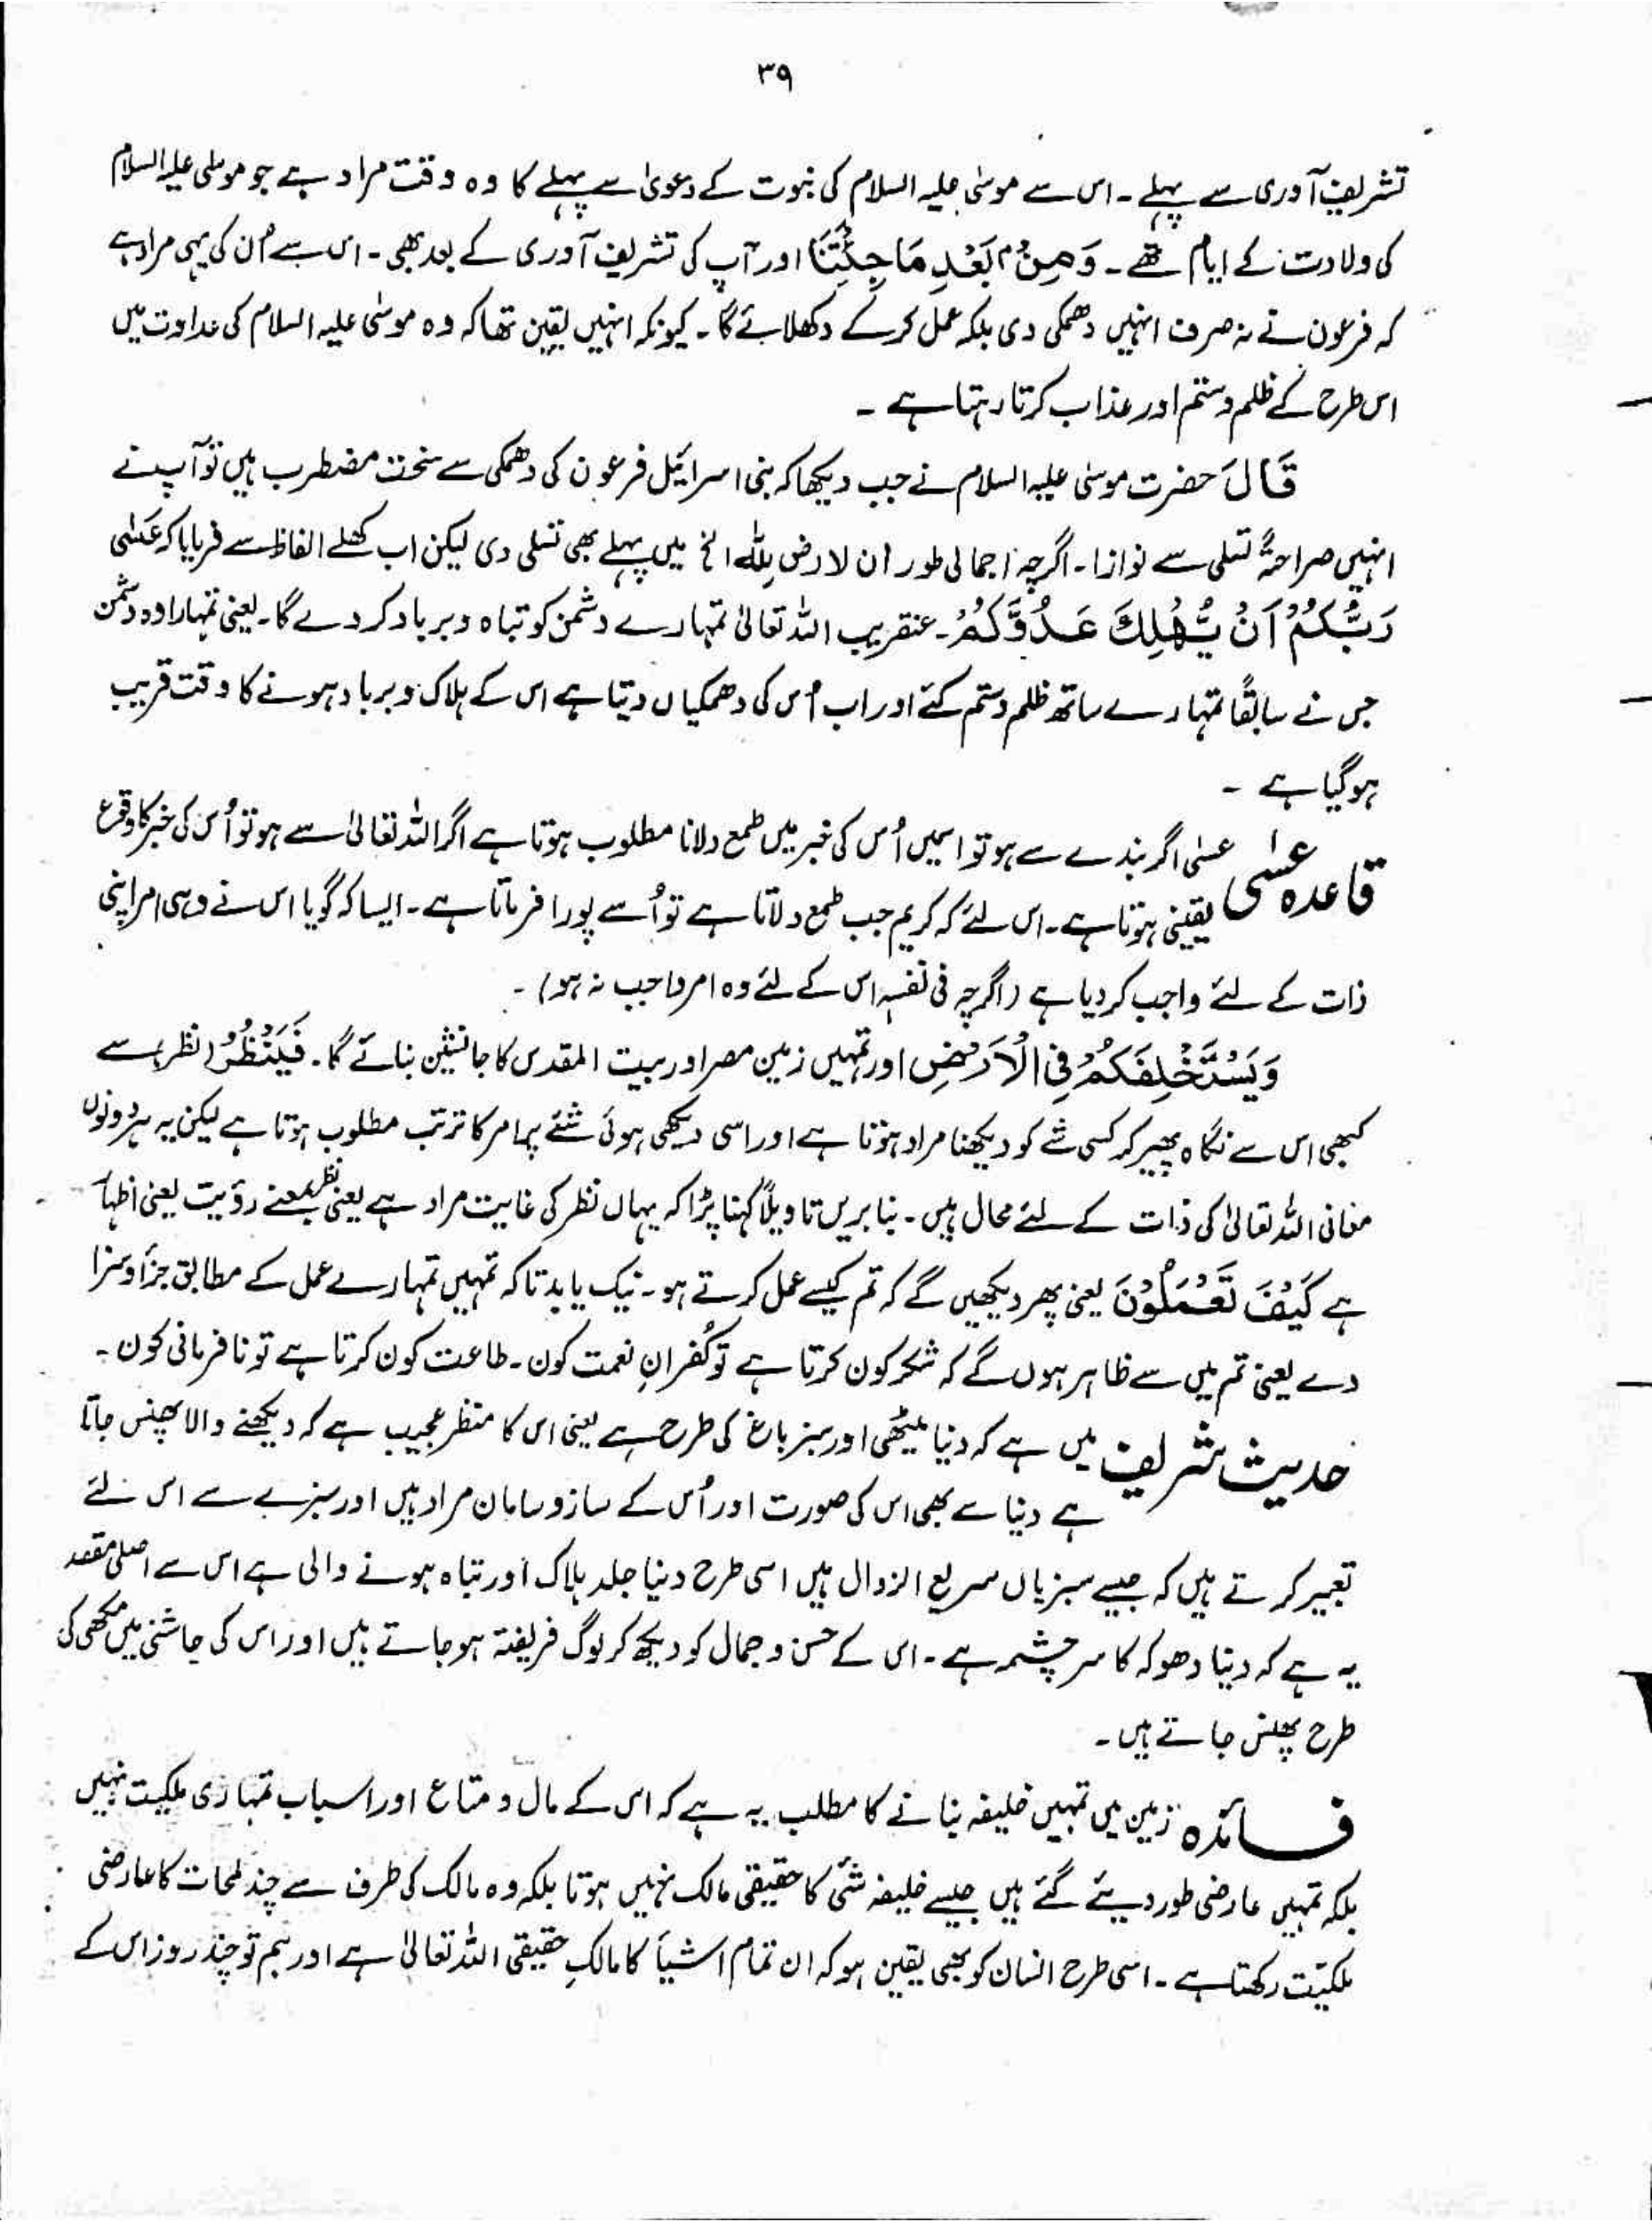 ۳۹
تشریف آوری سے پہلے ۔ اس سے موسٰی علیہ السلام کی نبوت کے دعویٰ سے پہلے کا وہ وقت مراد ہے جو موسٰی علیہ السلام
کی ولادت کے ایام تھے ۔ وَمِنْۢ بَعْدِ مَا جِئْتَنَا اور آپ کی تشریف آوری کے بعد بھی ۔ اس سے اُن کی یہی مراد ہے
کہ فرعون نے نہ صرف انہیں دھمکی دی بلکہ عمل کرکے دکھلائے گا ۔ کیونکہ انہیں یقین تھا کہ وہ موسٰی علیہ السلام کی عداوت میں
اس طرح کے ظلم و ستم اور عذاب کرتا رہتا ہے ۔
قَالَ حضرت موسٰی علیہ السلام نے جب دیکھا کہ بنی اسرائیل فرعون کی دھمکی سے سخت مضطرب ہیں تو آپ نے
انہیں صراحۃً تسلی سے نوازا ۔ اگرچہ اجمالی طور ان لارض للہ الخ میں پہلے بھی تسلی دی لیکن اب کھلے الفاظ سے فرمایا کہ عَسٰی
رَبُّكُمْ اَنْ يُّهْلِكَ عَدُوَّكُمْ ۔ عنقریب اللہ تعالیٰ تمہارے دشمن کو تباہ و برباد کر دے گا ۔ یعنی تمہارا وہ دشمن
جس نے سابقًا تمہارے ساتھ ظلم و ستم کئے اور اب اُس کی دھمکیاں دیتا ہے اس کے ہلاک و برباد ہونے کا وقت قریب
ہو گیا ہے ۔
قاعدہ عسٰی عسٰی اگر بندے سے ہو تو اسمیں اُس کی خبر میں طمع دلانا مطلوب ہوتا ہے اگر اللہ تعالیٰ سے ہو تو اُس کی خبر کا وقوع
یقینی ہوتا ہے ۔ اس لئے کہ کریم جب طمع دلاتا ہے تو اُسے پورا فرماتا ہے ۔ ایسا کہ گویا اس نے وہی امر اپنی
ذات کے لئے واجب کر دیا ہے (اگرچہ فی نفسہٖ اس کے لئے وہ امر واجب نہ ہو) ۔
وَيَسْتَخْلِفَكُمْ فِی الْاَرْضِ اور تمہیں زمین مصر اور بیت المقدس کا جانشین بنائے گا ۔ فَيَنْظُرَ (نظر) سے
کبھی اس سے نگاہ پھیر کر کسی شے کو دیکھنا مراد ہوتا ہے اور اسی دیکھی ہوئی شئے پر امر کا ترتب مطلوب ہوتا ہے لیکن یہ ہر دونوں
معانی اللہ تعالیٰ کی ذات کے لئے محال ہیں ۔ بنا بریں تاویلاً کہنا پڑا کہ یہاں نظر کی غایت مراد ہے یعنی نظر بمعنے رؤیت یعنی اظہار
ہے كَيْفَ تَعْمَلُوْنَ یعنی پھر دیکھیں گے کہ تم کیسے عمل کرتے ہو ۔ نیک یا بد تاکہ تمہیں تمہارے عمل کے مطابق جزا و سزا
دے یعنی تم میں سے ظاہر ہوں گے کہ شکر کون کرتا ہے تو کُفرانِ نعمت کون ۔ طاعت کون کرتا ہے تو نافرمانی کون ۔
حدیث شریف میں ہے کہ دنیا میٹھی اور سبز باغ کی طرح ہے یعنی اس کا منظر عجیب ہے کہ دیکھنے والا پھنس جاتا
ہے دنیا سے بھی اس کی صورت اور اُس کے ساز و سامان مراد ہیں اور سبزے سے اس لئے
تعبیر کرتے ہیں کہ جیسے سبزیاں سریع الزوال ہیں اسی طرح دنیا جلد ہلاک اور تباہ ہونے والی ہے اس سے اصلی مقصد
یہ ہے کہ دنیا دھوکہ کا سرچشمہ ہے ۔ اس کے حسن و جمال کو دیکھ کر لوگ فریفتہ ہو جاتے ہیں اور اس کی چاشنی میں مکھی کی
طرح پھنس جاتے ہیں ۔
فائدہ زمین میں تمہیں خلیفہ بنانے کا مطلب یہ ہے کہ اس کے مال و متاع اور اسباب تمہاری ملکیت نہیں
بلکہ تمہیں عارضی طور دیئے گئے ہیں جیسے خلیفہ شئ کا حقیقی مالک نہیں ہوتا بلکہ وہ مالک کی طرف سے چند لمحات کا عارضی
ملکیّت رکھتا ہے ۔ اسی طرح انسان کو بھی یقین ہو کہ ان تمام اشیأ کا مالکِ حقیقی اللہ تعالیٰ ہے اور ہم تو چند روز اس کے